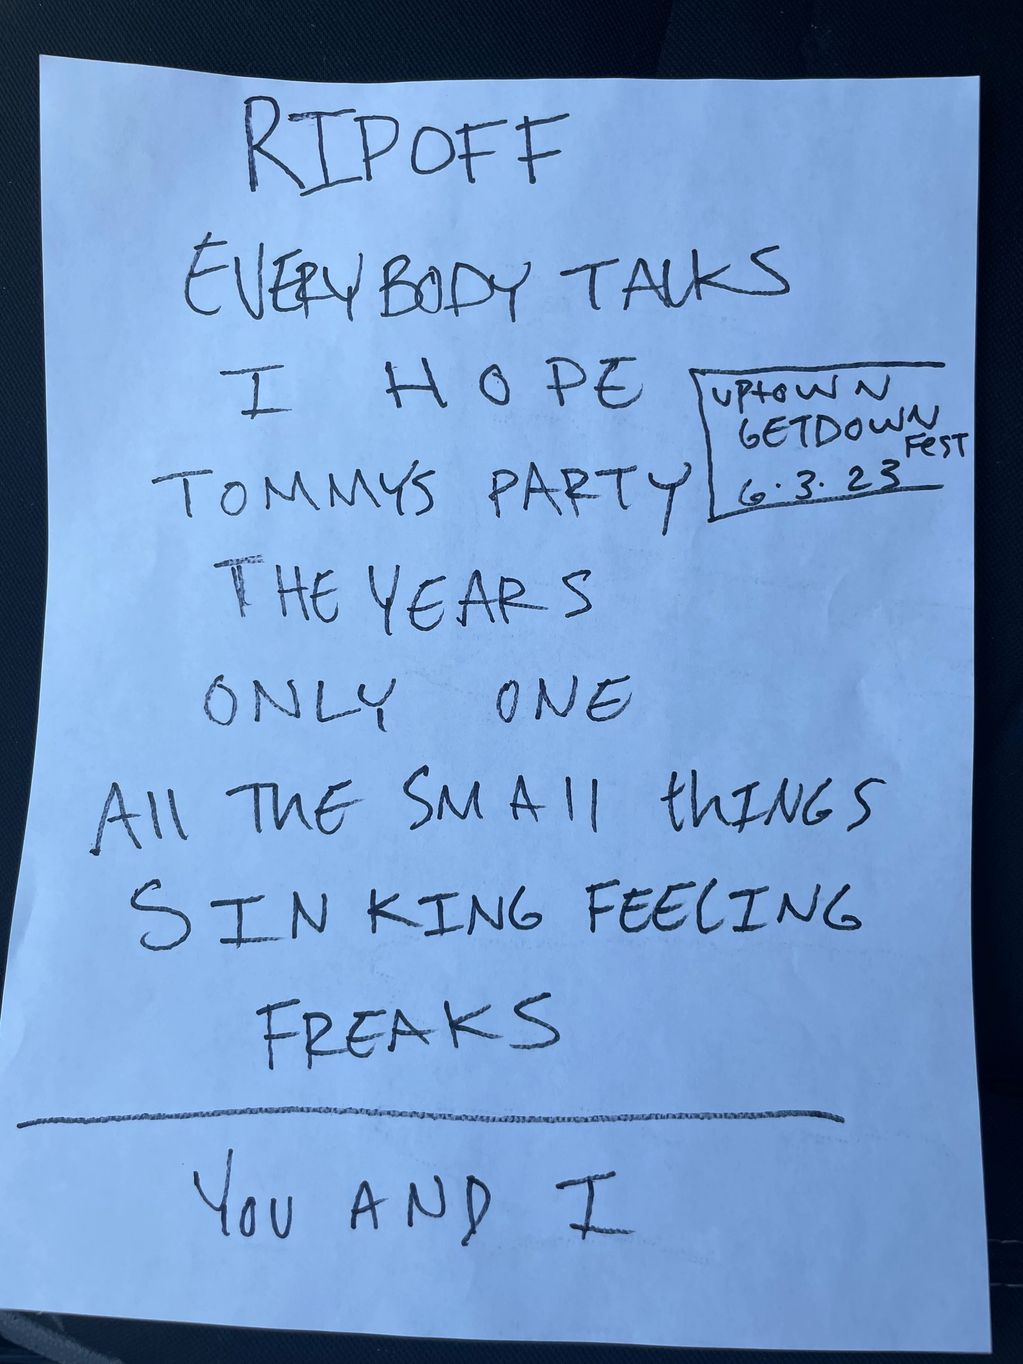 RIPOFF
EVERYBODY TALKS
I HOPE
UPtOWN
GETDOWN
FEST
6.3.23
TOMMY'S PARTY
THE YEARS
ONLY ONE
All THE SMAll thINGS
SINKING FEELING
FREAKS
YOU AND I